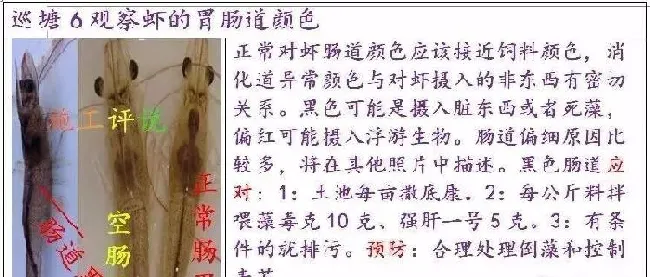 巡塘6观察虾的胃肠道颜色
正常对虾肠道颜色应该接近饲料颜色，消
化道异常颜色与对虾摄入的非东西有密切
关系。黑色可能是摄入脏东西或者死藻，
偏红可能摄入浮游生物。肠道偏细原因比
较多，将在其他照片中描述。黑色肠道应
对：1：土池每亩撒底康．2：每公斤料拌
喂藻毒克10克、强肝一号5克。3：有条
件的就排污。预防：合理处理倒藻和控制
施工评说
肠道黑
空肠
正常肠